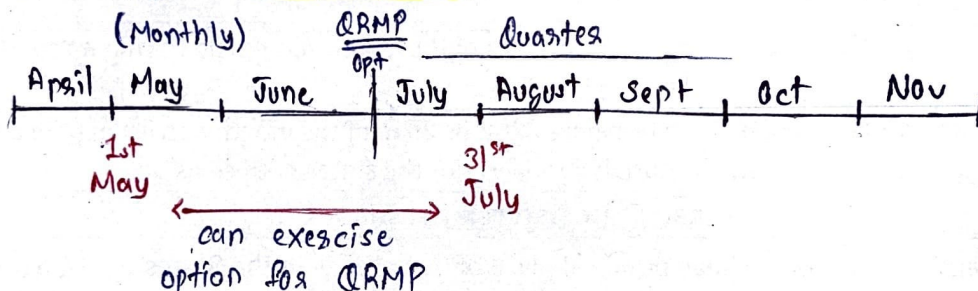 (Monthly) QRMP Quarter
opt
April May June July August Sept Oct Nov
1st 31st
May July
can exercise
option for QRMP